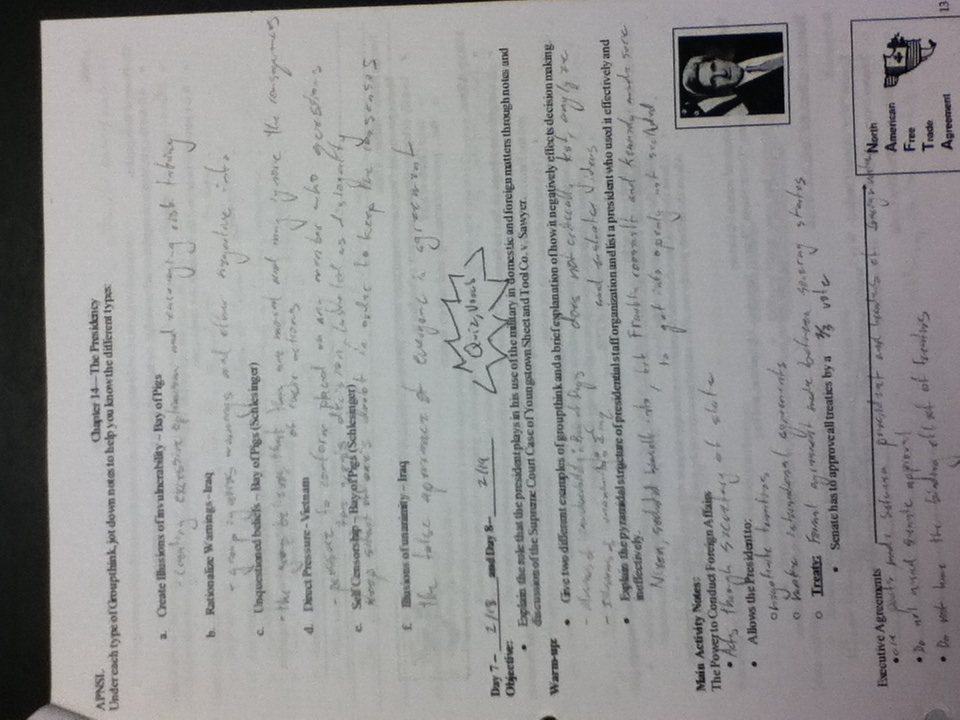 APNSL Chapter 14—The Presidency
Under each type of Groupthink, jot down notes to help you know the different types:
a. Create Illusions of invulnerability – Bay of Pigs
- creating excessive optimism and encouraging risk taking
b. Rationalize Warnings - Iraq
- group ignores warnings and other negative info
c. Unquestioned beliefs – Bay of Pigs (Schlesinger)
- the group believes that they are moral and may ignore the consequences
of their actions
d. Direct Pressure - Vietnam
- pressure to conform placed on any member who questions
the group's decision, labeled as disloyalty
e. Self Censorship – Bay of Pigs (Schlesinger)
keep silent on one's doubt in order to keep the consensus
f. Illusions of unanimity – Iraq
the false appearance of everyone in agreement
Quiz, Vocab
Day 7 – 2/18 and Day 8– 2/19
Objective:
• Explain the role that the president plays in his use of the military in domestic and foreign matters through notes and
discussion of the Supreme Court Case of Youngstown Sheet and Tool Co. v. Sawyer.
Warm-up:
• Give two different examples of groupthink and a brief explanation of how it negatively effects decision making.
- Illusions of invulnerability: Bay of Pigs does not critically test, analyze
- Illusions of unanimity: Iraq and evaluate
• Explain the pyramidal structure of presidential staff organization and list a president who used it effectively and
ineffectively.
Nixon, himself into, but Franklin and Kennedy made sure
to get info openly not secluded
Main Activity Notes:
The Power to Conduct Foreign Affairs
• Acts through secretary of state
• Allows the President to:
o negotiate treaties
o make international agreements
o Treaty: Formal agreement made between sovereign states
• Senate has to approve all treaties by a 2/3 vote
Executive Agreements
• are pacts made between president and heads of
• Do not need senate approval
• Do not have the binding effect of treaties
North
American
Free
Trade
Agreement
13